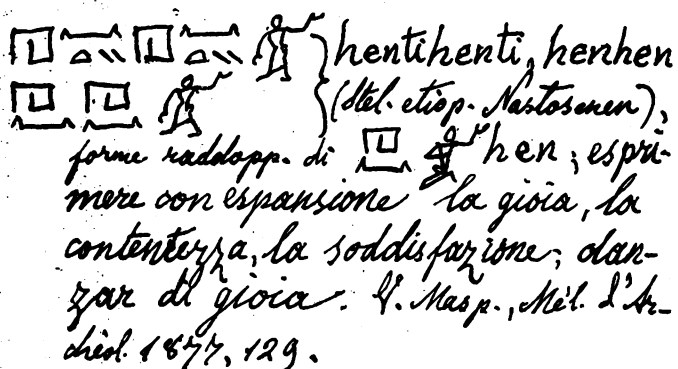 hentihenti, henhen
(Stel. etiop. Nastosenen),
forme raddopp. di hen; espri-
mere con espansione la gioia, la
contentezza, la soddisfazione; dan-
zar di gioia. V. Masp., Mél. d'Ar-
chéol. 1877, 129.